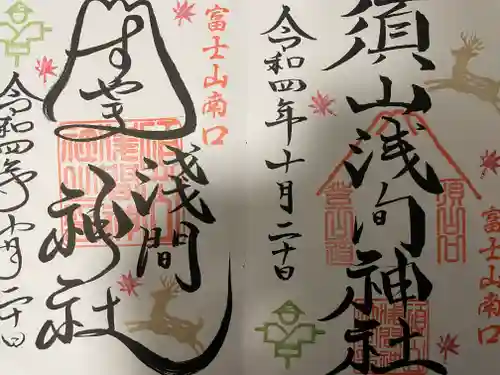 須山浅间神社
令和四年十月二十日
富士山南口
富士山南口
すやま
浅間
神社
令和四年十月二十日